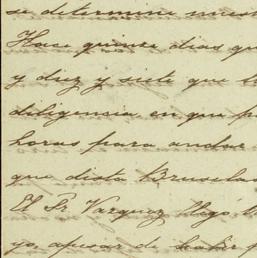 se determine
Hace quince dias qu
y diez y siete que
diligencia en que p
horas para andar
que dista Bruselas
El Sr Vazquez llegó
yo, apesar de haber